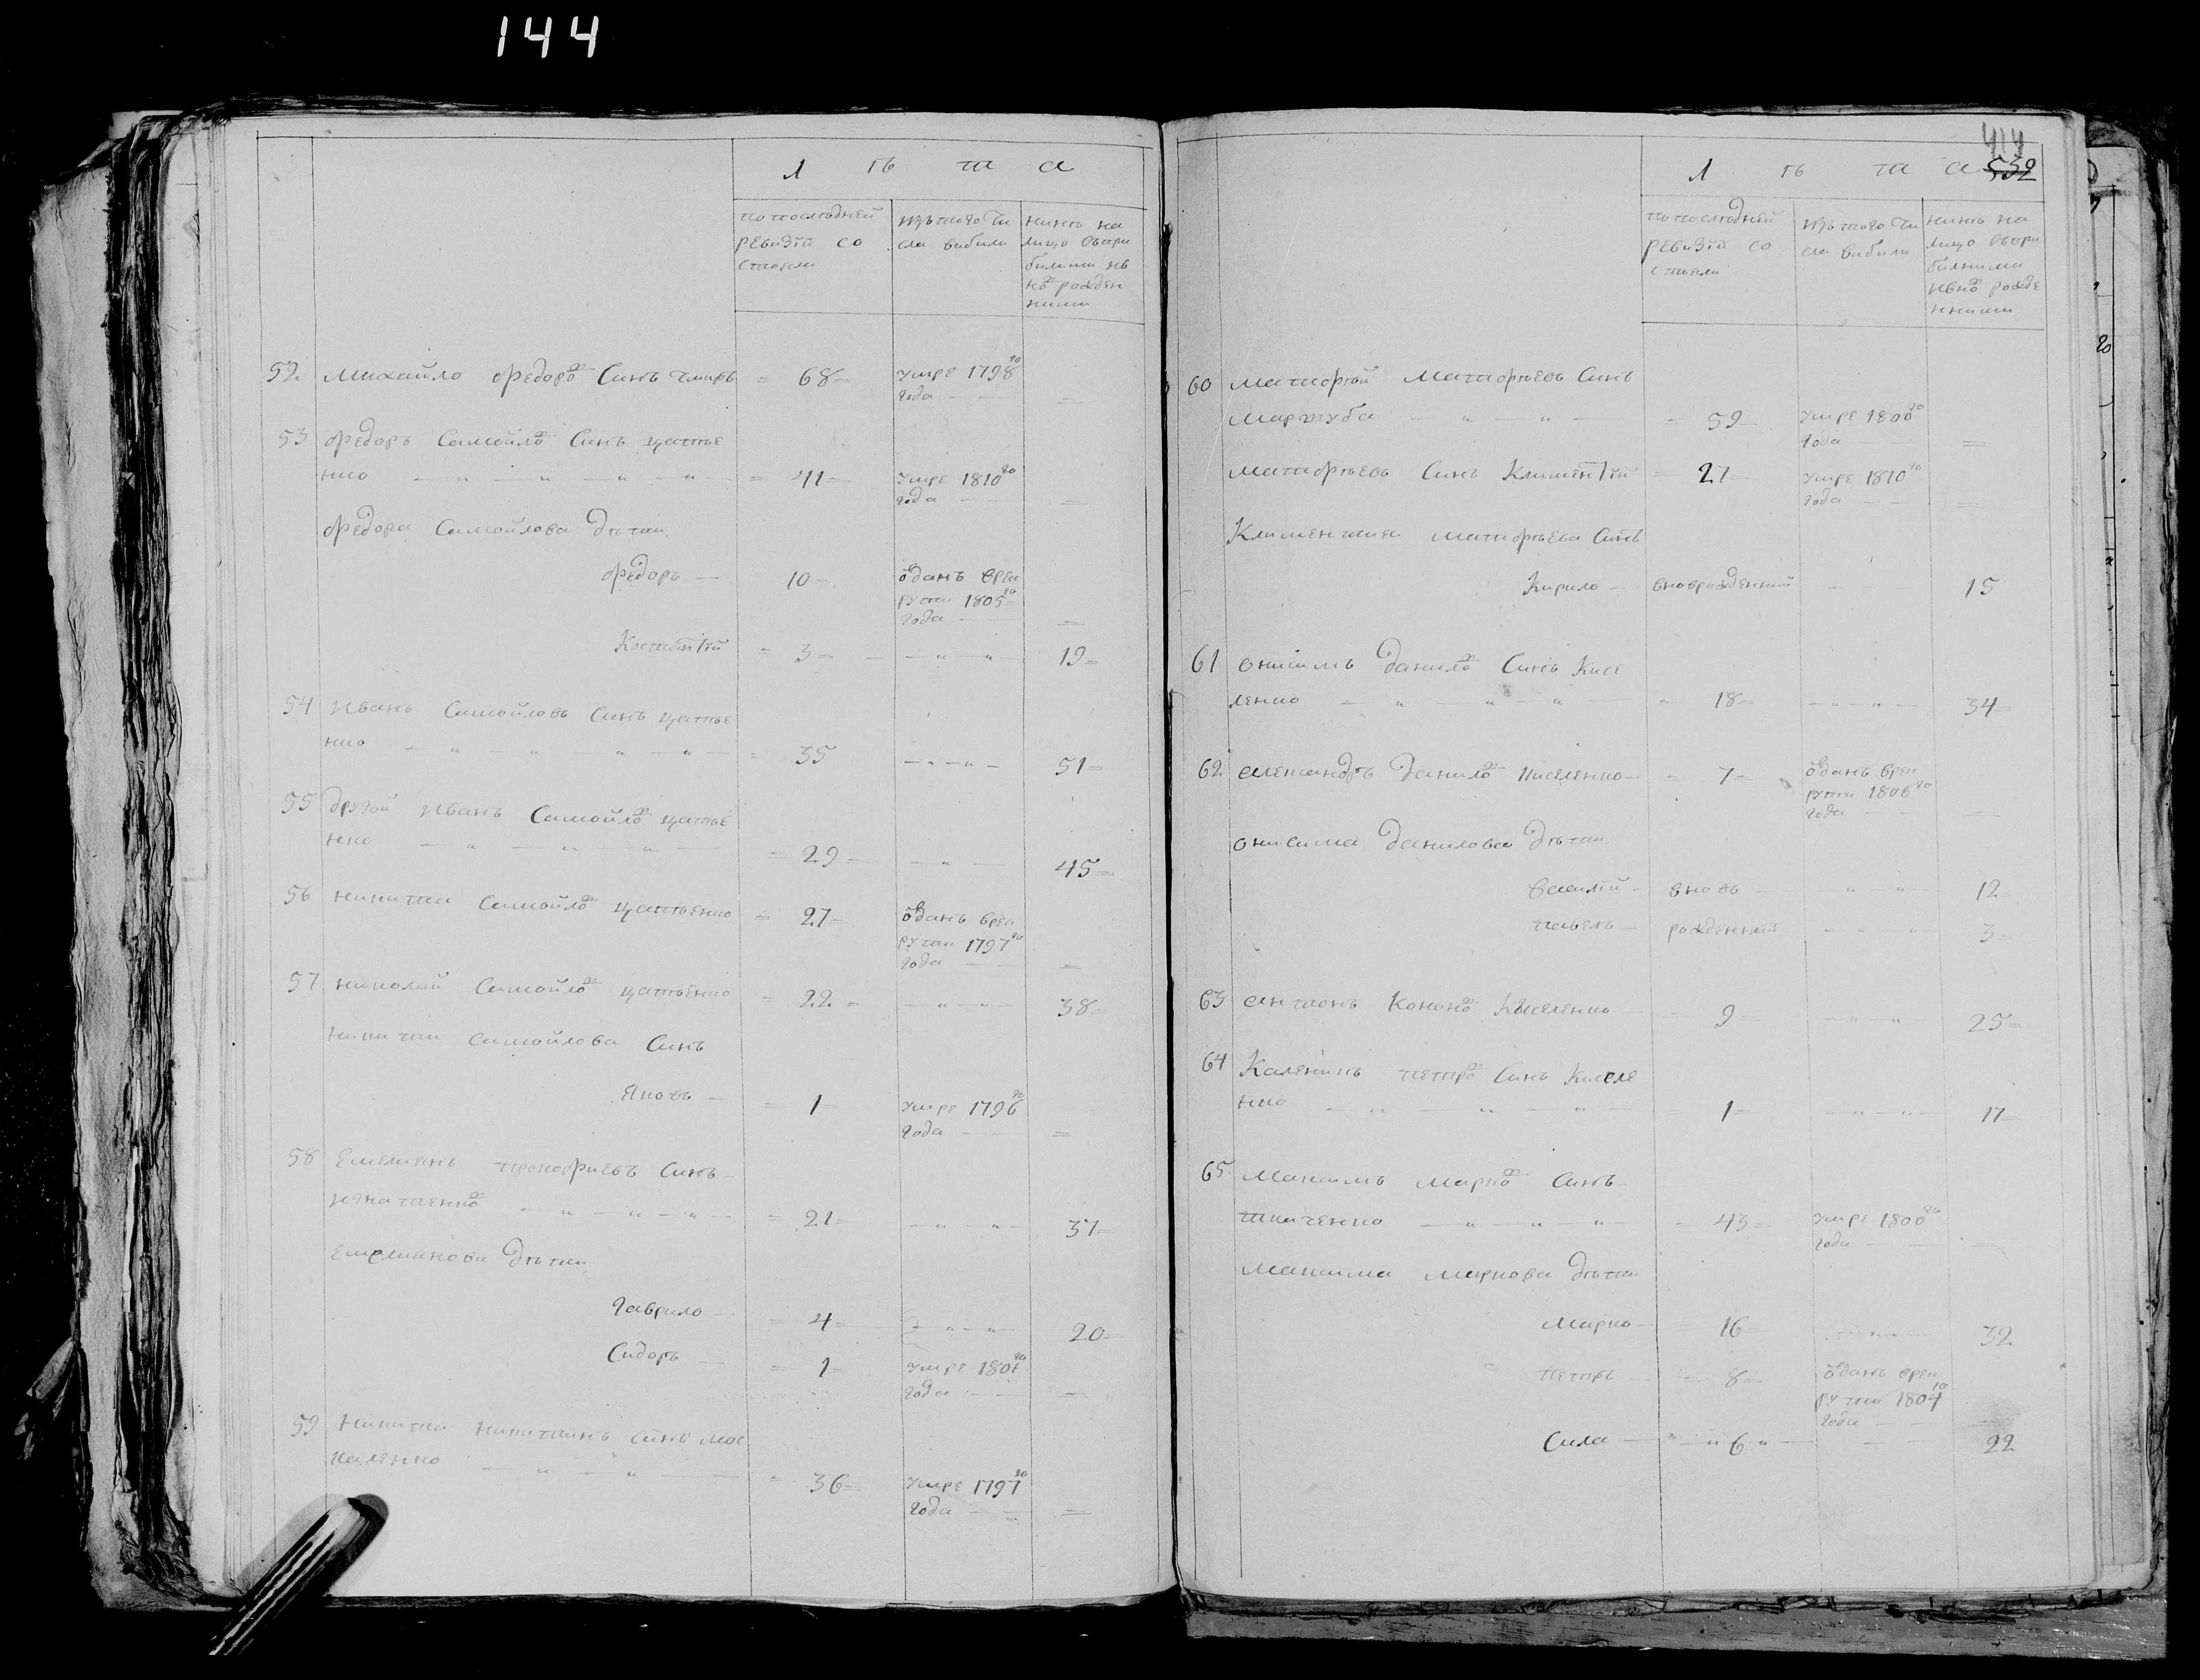 144
Л ѣ т а
по последней ревизіи состояли
изъ того числа выбыли
ныне на лицо съ прибылыми и вновь рожденными
52 Михайло Федоровъ Синъ =68= умре 1798го года =
53 Федоръ Самойловъ Синъ Цапье
нко =41= умре 1810го года =
Федора Самойлова Дѣти
Федоръ — 10= оданъ врекрути 1805го года =
Костантій =3= 19=
54 Иванъ Самойловъ Синъ Цапье
нко =35 51=
55 Другой Иванъ Самойловъ Цапье
нко =29= 45=
56 Никита Самойловъ Цапьенко =27= оданъ врекрути 1797го года =
57 Николай Самойловъ Цапьенко =22= 38=
Никити Самойлова Синъ
Яковъ — =1= умре 1796го года =
58 Емельянъ Прокофиевъ Синъ
Игнатенко =21= 37=
Емельянова Дѣти
Гаврило — =4= 20=
Сидоръ — =1= умре 1801го года —
59 Никита Никитинъ Синъ Мос
каленко =36= умре 1797го года =
414
532
Л ѣ т а
по последней ревизіи состояли
изъ того числа выбыли
ныне на лицо съ прибылыми и вновь рожденными
60 Матфей Матфеевъ Синъ
Маржуба =59= умре 1800го года =
Матфеевъ Синъ Климентій =27= умре 1810го года =
Климентия Матфеева Синъ
Кирило — вноврожденний — 15
61 Онисимъ Даниловъ Синъ Кисе
ленко =18= 34=
62 Александръ Даниловъ Киселенко =7= оданъ врекрути 1806го года —
Онисима Данилова Дѣти
Василій — вновь — 12=
Павелъ — рожденний 3=
63 Антонъ Кононовъ Киселенко =9= 25=
64 Каленикъ Петровъ Синъ Кисле
нко 1= 17
65 Максимъ Марковъ Синъ
Ткаченко =43= умре 1800го года —
Максима Маркова Дѣти
Марко — 16= 32
Петръ =8= оданъ врекрути 1804го года =
Сила — 6 — 22